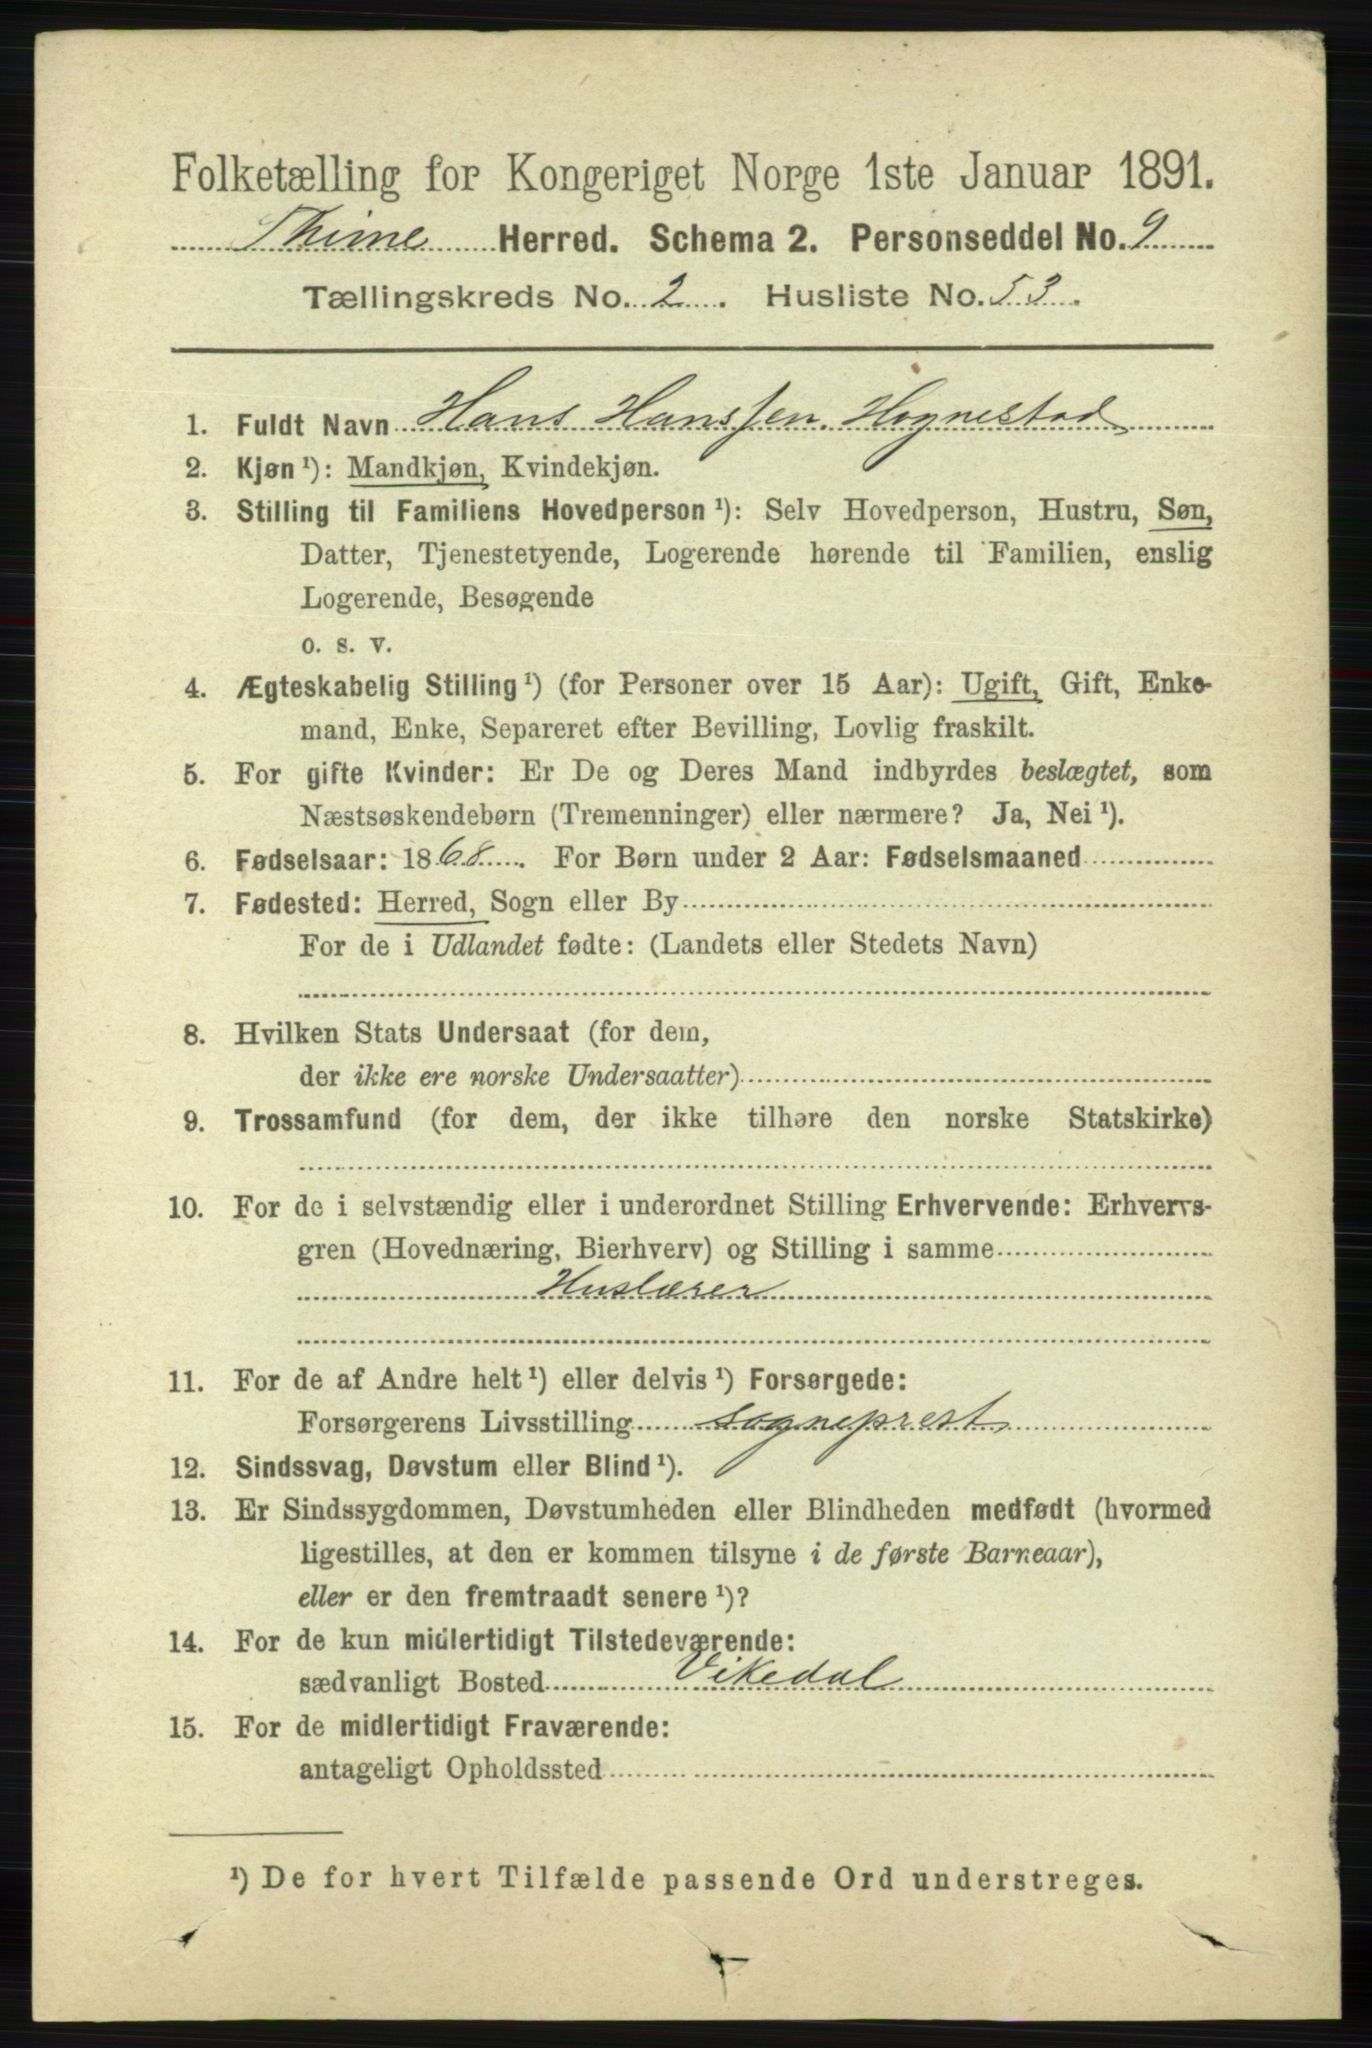 Folketælling for Kongeriget Norge 1ste Januar 1891.
Thime Herred. Schema 2. Personseddel No. 9
Tællingskreds No. 2. Husliste No. 53.
1. Fuldt Navn Hans Hanssen Hognestad
2. Kjøn ¹): Mandkjøn, Kvindekjøn.
3. Stilling til Familiens Hovedperson ¹): Selv Hovedperson, Hustru, Søn,
Datter, Tjenestetyende, Logerende hørende til Familien, enslig
Logerende, Besøgende
o. s. v.
4. Ægteskabelig Stilling ¹) (for Personer over 15 Aar): Ugift, Gift, Enke-
mand, Enke, Separeret efter Bevilling, Lovlig fraskilt.
5. For gifte Kvinder: Er De og Deres Mand indbyrdes beslægtet, som
Næstsøskendebørn (Tremenninger) eller nærmere? Ja, Nei ¹).
6. Fødselsaar: 1868. For Børn under 2 Aar: Fødselsmaaned
7. Fødested: Herred, Sogn eller By
For de i Udlandet fødte: (Landets eller Stedets Navn)
8. Hvilken Stats Undersaat (for dem,
der ikke ere norske Undersaatter)
9. Trossamfund (for dem, der ikke tilhøre den norske Statskirke)
10. For de i selvstændig eller i underordnet Stilling Erhvervende: Erhvervs-
gren (Hovednæring, Bierhverv) og Stilling i samme
Huslærer
11. For de af Andre helt ¹) eller delvis ¹) Forsørgede:
Forsørgerens Livsstilling sogneprest
12. Sindssvag, Døvstum eller Blind ¹).
13. Er Sindssygdommen, Døvstumheden eller Blindheden medfødt (hvormed
ligestilles, at den er kommen tilsyne i de første Barneaar),
eller er den fremtraadt senere ¹)?
14. For de kun midlertidigt Tilstedeværende:
sædvanligt Bosted Vikedal
15. For de midlertidigt Fraværende:
antageligt Opholdssted
¹) De for hvert Tilfælde passende Ord understreges.